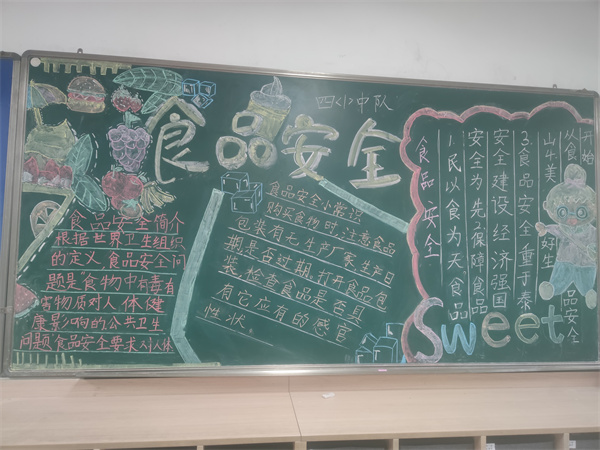 食品安全
四〈1〉中队
食品安全简介
根据世界卫生组织
的定义,食品安全问
题是"食物中有毒有
害物质对人体健
康影响的公共卫生
问题食品安全要求对人体
食品安全小常识
购买食物时,注意食品
包装有无生产厂家,生产日
期,是否过期,打开食品包
装,检查食品是否具
有它应有的感官
性状。
食品安全
1.民以食为天,食品
安全为先2.保障食品
安全建设经济强国
3.食品安全重于泰
山4.美好生
从食品安全
开始
Sweet